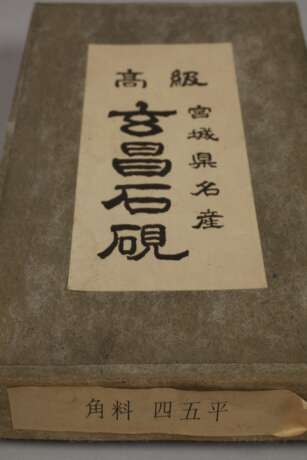 高級
宮城県名産
玄昌石硯
角料 四五平